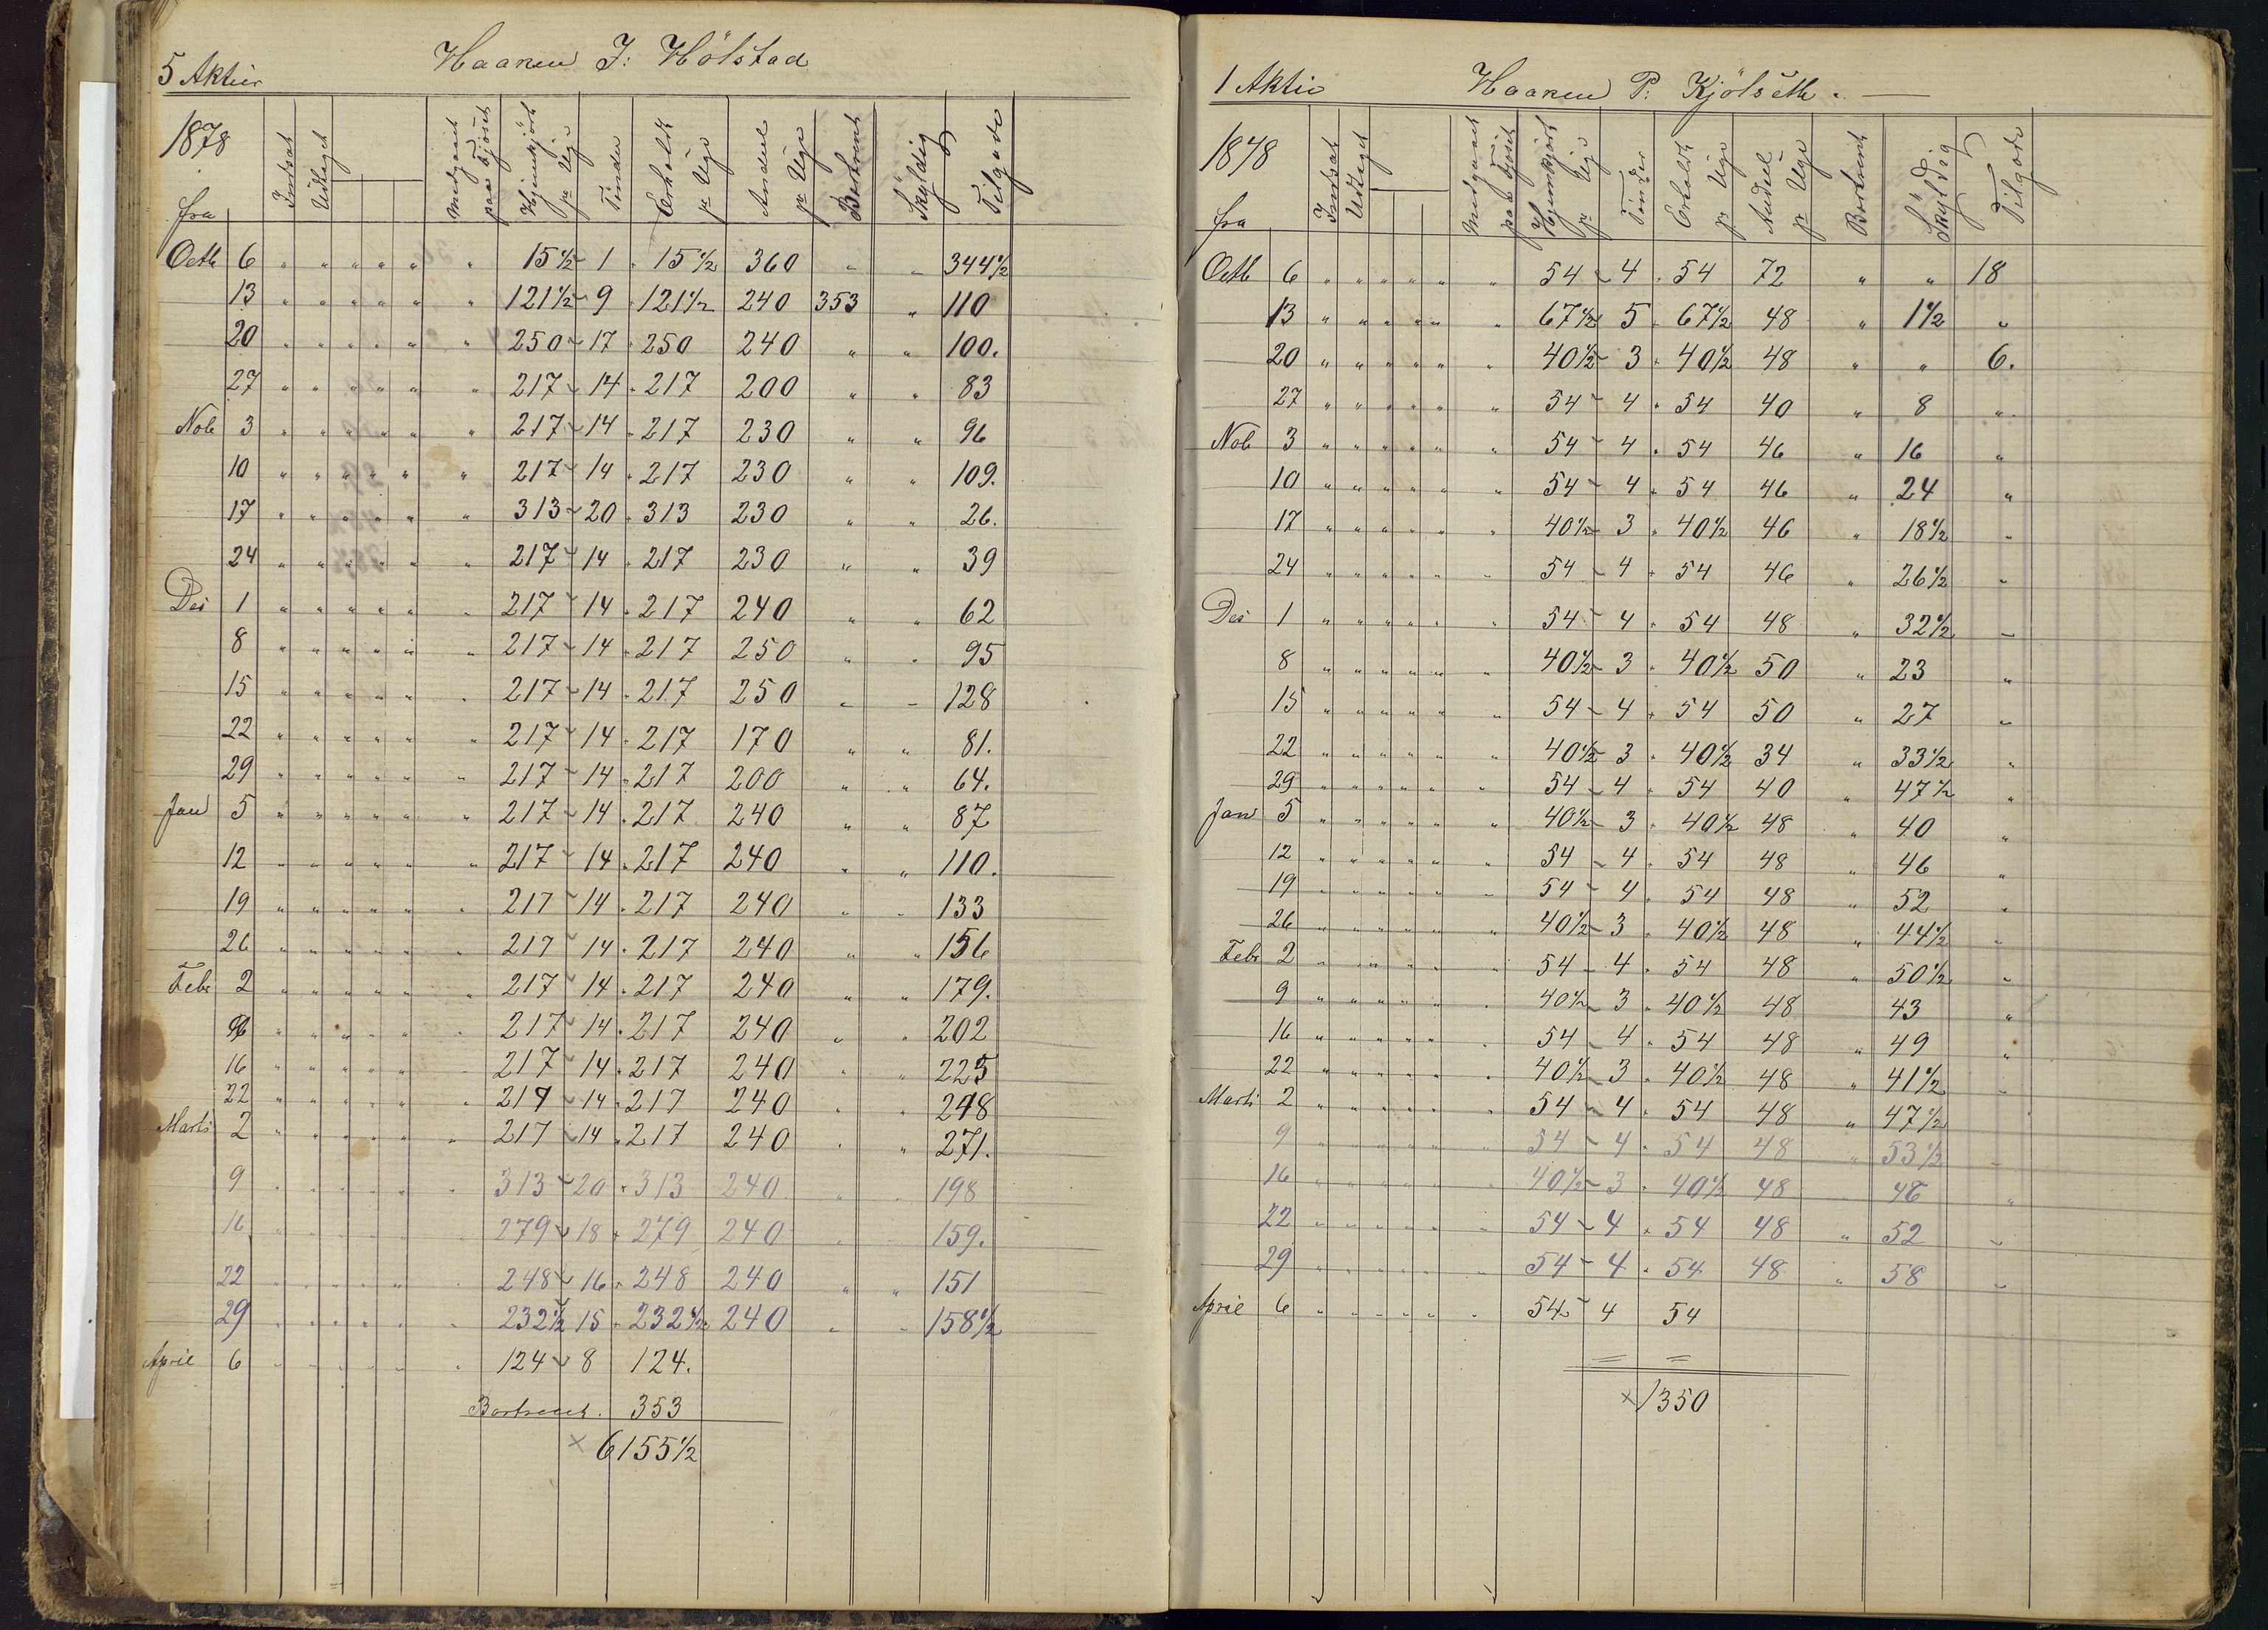 5 Aktier Haaken J: Hölstad
1878
fra Indsat Udtaget Medgaaet paa Fjöset Hjemkjört pr Uge Tönder Erholdt pr Uge Andeel pr Uge Bortrent Skyldig Tilgode
Octb 6 " " " " " " 15 1/2 - 1 " 15 1/2 360 " " 344 1/2
13 " " " " " " 121 1/2 - 9 " 121 1/2 240 353 " 110
20 " " " " " " 250 - 17 " 250 240 " " 100.
27 " " " " " " 217 - 14 " 217 200 " " 83
Nob 3 " " " " " " 217 - 14 " 217 230 " " 96
10 " " " " " " 217 - 14 " 217 230 " " 109.
17 " " " " " " 313 - 20 " 313 230 " " 26.
24 " " " " " " 217 - 14 " 217 230 " " 39
Des 1 " " " " " " 217 - 14 " 217 240 " " 62
8 " " " " " " 217 - 14 " 217 250 " " 95
15 " " " " " " 217 - 14 " 217 250 " " 128
22 " " " " " " 217 - 14 " 217 170 " " 81.
29 " " " " " " 217 - 14 " 217 200 " " 64.
Jan 5 " " " " " " 217 - 14 " 217 240 " " 87
12 " " " " " " 217 - 14 " 217 240 " " 110.
19 " " " " " " 217 - 14 " 217 240 " " 133
26 " " " " " " 217 - 14 " 217 240 " " 156
Febr 2 " " " " " " 217 - 14 " 217 240 " " 179.
9 " " " " " " 217 - 14 " 217 240 " " 202
16 " " " " " " 217 - 14 " 217 240 " " 225
22 " " " " " " 217 - 14 " 217 240 " " 248
Marts 2 " " " " " " 217 - 14 " 217 240 " " 271.
9 " " " " " " 313 - 20 " 313 240 " " 198
16 " " " " " " 279 - 18 " 279 240 " " 159.
22 " " " " " " 248 - 16 " 248 240 " " 151
29 " " " " " " 232 1/2 15 " 232 1/2 240 " " 158 1/2
April 6 " " " " " " 124 - 8 124.
Bortrent. 353
× 6155 1/2
1 Aktie Haaken P: Kjölseth. —
1878
fra Indsat Udtaget Medgaaet paa Fjöset Hjemkjört pr Uge Tönder Erholdt pr Uge Andeel pr Uge Bortrent Skyldig Tilgode
Octb 6 " " " " " " 54 - 4 " 54 72 " " 18
13 " " " " " " 67 1/2 5 " 67 1/2 48 " 1 1/2 "
20 " " " " " " 40 1/2 - 3 " 40 1/2 48 " " 6.
27 " " " " " " 54 - 4 " 54 40 " 8 "
Nob 3 " " " " " " 54 - 4 " 54 46 " 16 "
10 " " " " " " 54 - 4 " 54 46 " 24 "
17 " " " " " " 40 1/2 - 3 " 40 1/2 46 " 18 1/2 "
24 " " " " " " 54 - 4 " 54 46 " 26 1/2 "
Des 1 " " " " " " 54 - 4 " 54 48 " 32 1/2 "
8 " " " " " " 40 1/2 - 3 " 40 1/2 50 " 23 "
15 " " " " " " 54 - 4 " 54 50 " 27 "
22 " " " " " " 40 1/2 - 3 " 40 1/2 34 " 33 1/2 "
29 " " " " " " 54 - 4 " 54 40 " 47 1/2 "
Jan 5 " " " " " " 40 1/2 - 3 " 40 1/2 48 " 40 "
12 " " " " " " 54 - 4 " 54 48 " 46 "
19 " " " " " " 54 - 4 " 54 48 " 52 "
26 " " " " " " 40 1/2 - 3 " 40 1/2 48 " 44 1/2 "
Febr 2 " " " " " " 54 - 4 " 54 48 " 50 1/2 "
9 " " " " " " 40 1/2 - 3 " 40 1/2 48 43 "
16 " " " " " " 54 - 4 " 54 48 " 49 "
22 " " " " " " 40 1/2 - 3 " 40 1/2 48 " 41 1/2 "
Marts 2 " " " " " " 54 - 4 " 54 48 " 47 1/2
9 " " " " " " 54 - 4 " 54 48 " 53 1/2 "
16 " " " " " " 40 1/2 - 3 " 40 1/2 48 46 "
22 " " " " " " 54 - 4 " 54 48 " 52 "
29 " " " " " " 54 - 4 " 54 48 " 58 "
April 6 " " " " " " 54 - 4 54
× 1350